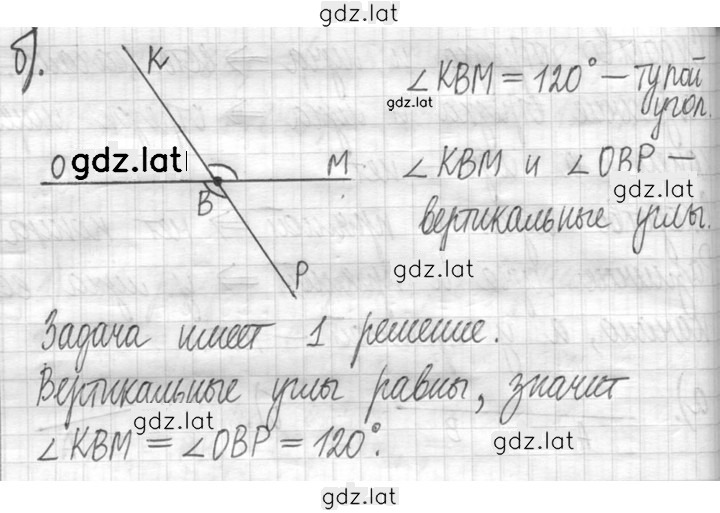 gdz.lat
б).
K
∠KBM = 120° – тупой
gdz.lat
угол.
O
gdz.lat
M
B
∠KBM и ∠OBP –
gdz.lat
вертикальные углы.
gdz.lat
P
Задача имеет 1 решение.
Вертикальные углы равны, значит
gdz.lat
∠KBM = ∠OBP = 120°.
gdz.lat
gdz.lat